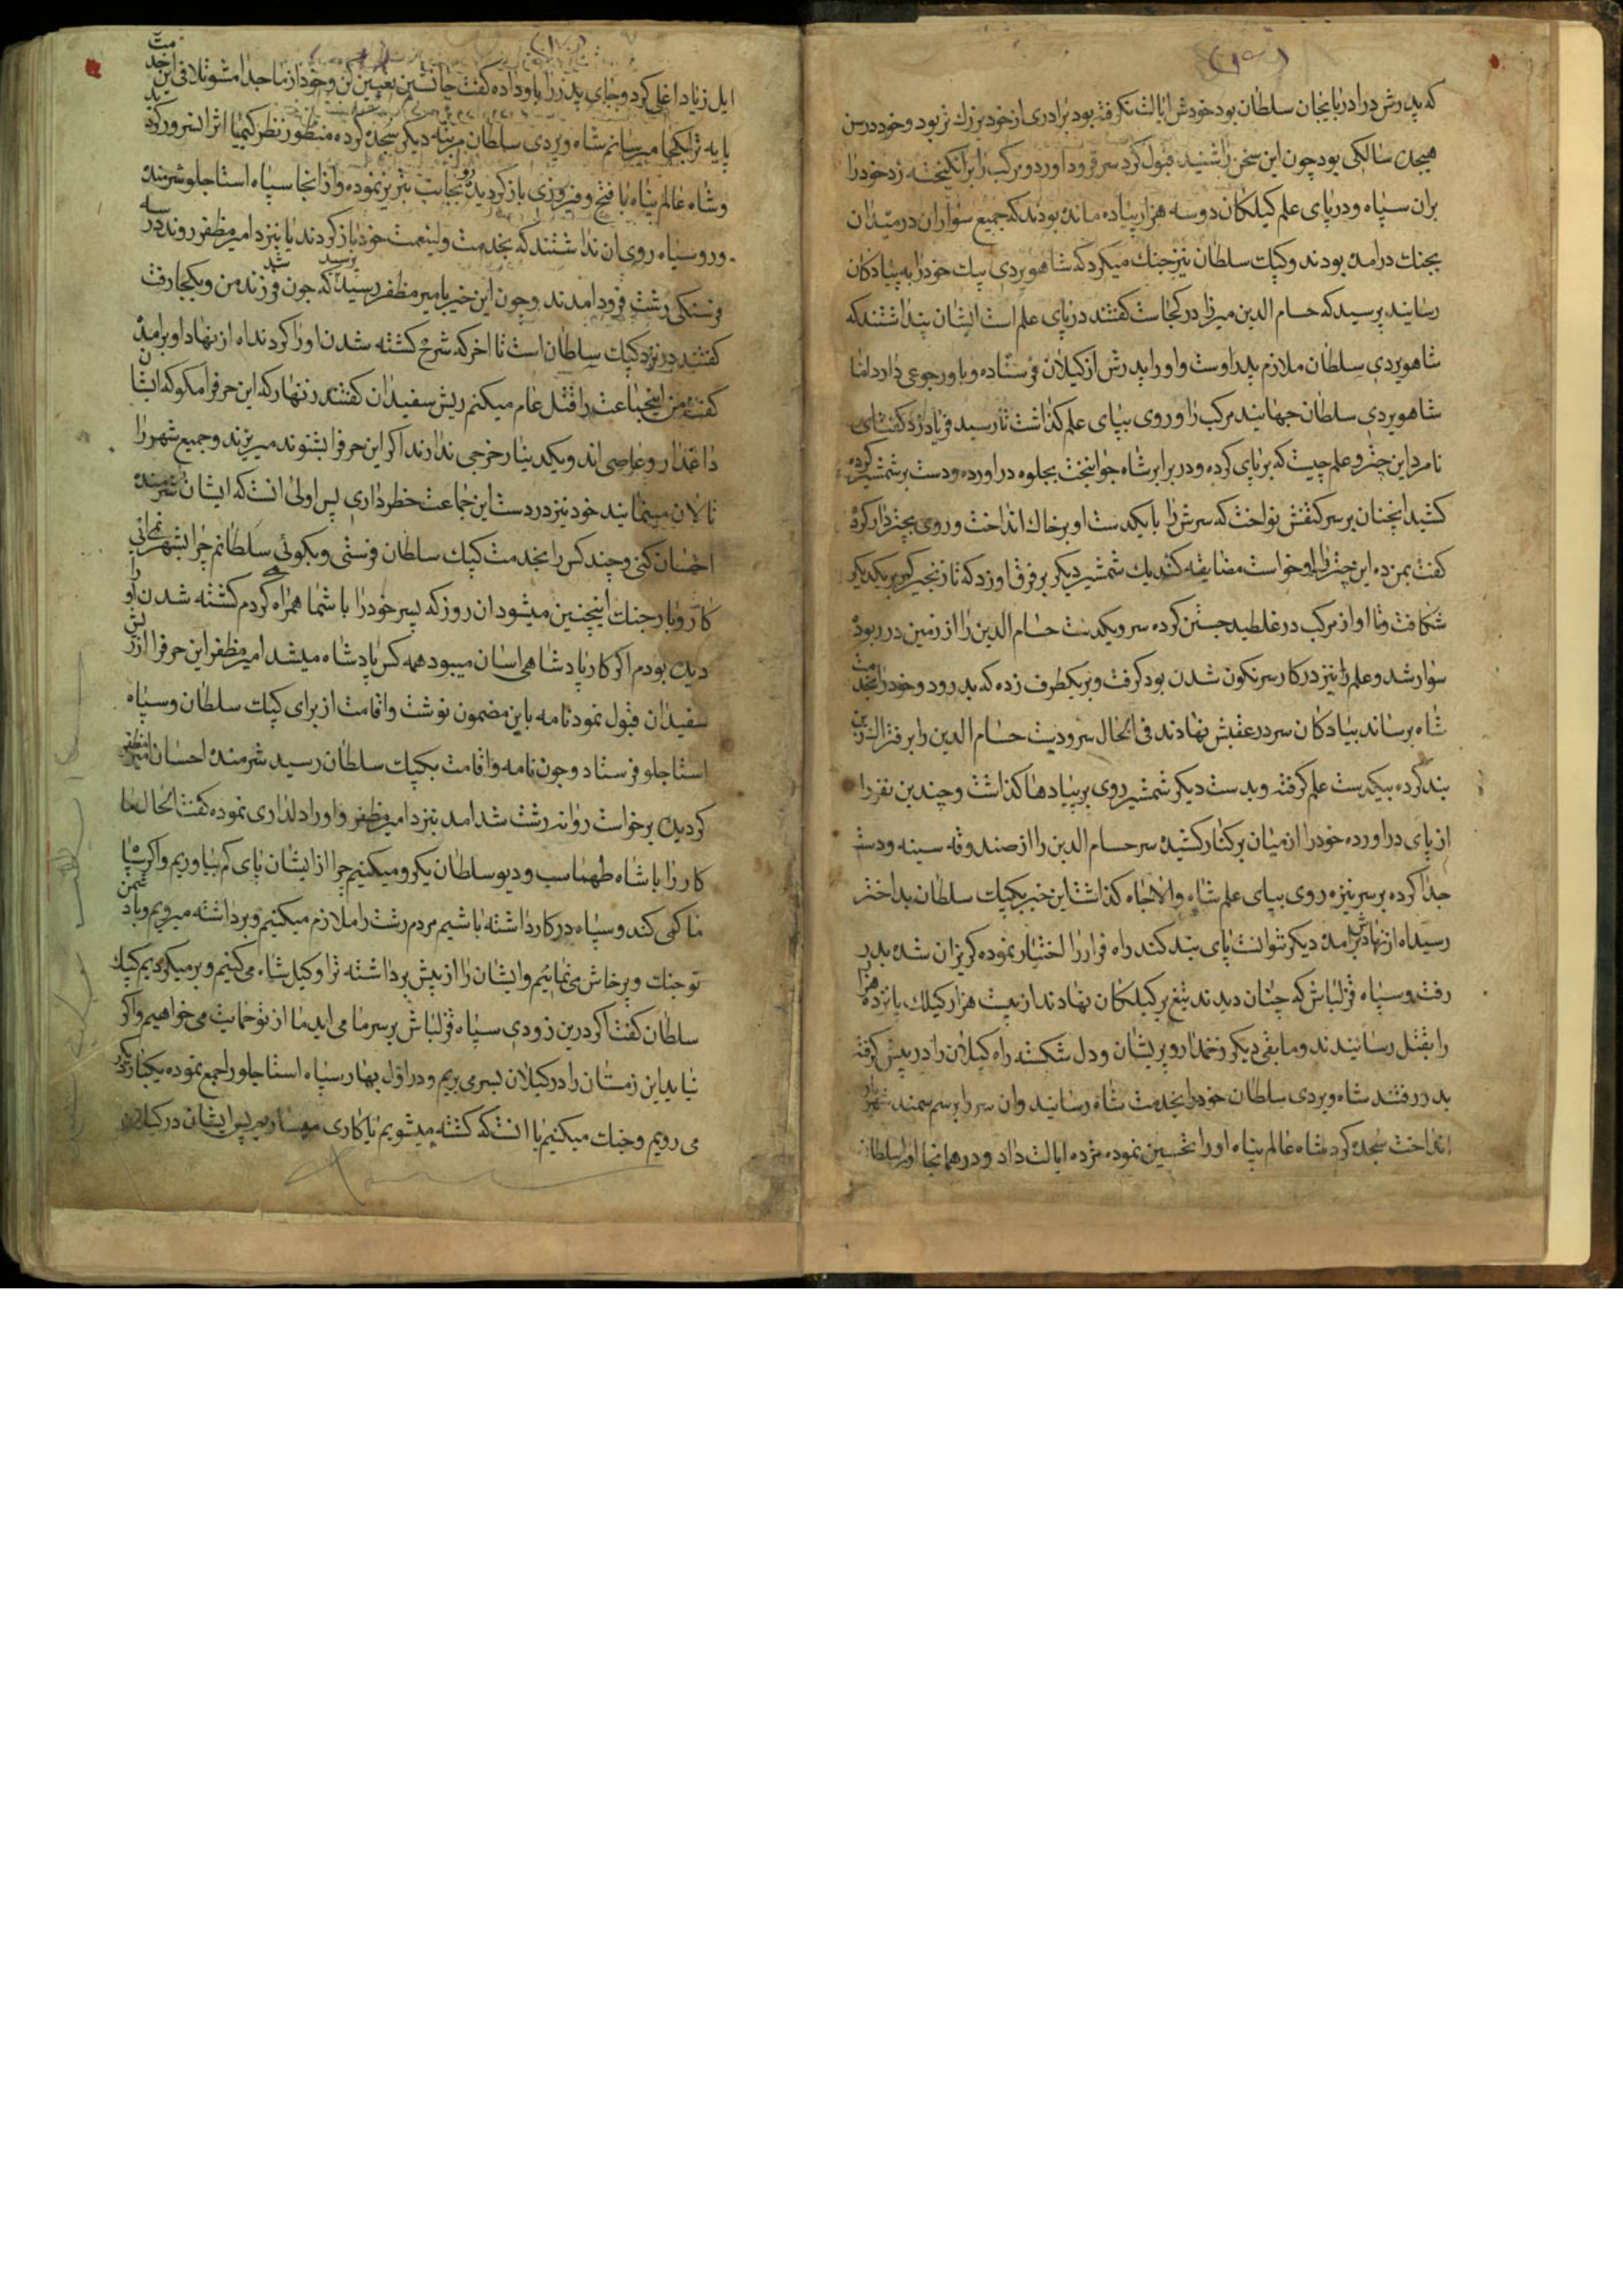 که پدرش در اذربایجان سلطان بود خودش ایالت نکرفته بود برادری از خود بزرك تر بود و خود در سن
هیجده سالکی بود چون این سخن را شنید قبول کرد سر فرود اورد و مرکب را برانکیخته زد خود را
بران سپاه و در پای علم کیلکان دو سه هزار پیاده مانده بودند که جمیع سواران در میدان
بجنك درامده بودند و کپك سلطان نیز جنك میکرد که شاهویردی بيك خود را به پیادکان
رسانید پرسید که حسام الدین میرزا در کجاست کفتند در پای علم است ایشان پنداشتند که
شاهویردی سلطان ملازم پدر اوست و او را پدرش از کیلان فرستاده و باو رجوعی دارد اما
شاهویردی سلطان جهانید مرکب را و روی بپای علم کذاشت تا رسید فریاد زد کفت ای
نامرد این چتر و علم چیست که بر پای کرده و در برابر شاه جوانبخت بجلوه دراورده و دست بر شمشیر کرده
کشید انچنان بر سر کتفش نواخت که سرش را با یکدست او بر خاك انداخت و روی بچتردار کرد
کفت بمن ده این چتر را او خواست مضایقه کند یك شمشیر دیکر بر فرق او زد که تا زنجیر کمر بر یکدیکر
شکافت و تا او از مرکب در غلطید جستن کرده سر و یکدست حسام الدین را از زمین در ربود
سوار شد و علم را نیز در کار سرنکون شدن بود کرفت و بر یکطرف زده که بدر رود و خود را بخدمت
شاه برساند پیادکان سر در عقبش نهادند فی الحال سر و دست حسام الدین را بر فتراك زین
بند کرده بیکدست علم کرفته و بدست دیکر شمشیر روی بر پیادها کذاشت و چندین نفر را
از پای دراورده خود را از میان بر کنار کشیده سر حسام الدین را از صندوقه سینه و دست
جدا کرده بر سر نیزه روی بپای علم شاه والاجاه کذاشت این خبر بکپك سلطان بداختر
رسید اه از نهادش برامده دیکر نتوانست پای بند کند راه فرار را اختیار نموده کریزان شده بدر
رفت و سپاه قزلباش که چنان دیدند تیغ بر کیلکان نهادند از بیست هزار کیلك پانزده هزار
را بقتل رسانیدند و مابقی دیکر زخمدار و پریشان و دل شکسته راه کیلان را در پیش کرفته
بدر رفتند شاه ویردی سلطان خود را بخدمت شاه رسانید و ان سر را بر سم سمند شهریار
انداخت سجده کرد شاه عالم پناه او را تحسین نموده مژده ایالت داد و در همانجا او را سلطان
ایل زیاد اغلی کرد و جای پدر را باو داده کفت جانشین تعیین کن و خود از ما جدا مشو تلافی این خدمت
پایه ترا بکجا میرسانم شاه ویردی سلطان مرتبه دیکر سجده کرده منظور نظر کیمیا اثر انسرور کردید
و شاه عالم پناه با فتح و فیروزی باز کردیده رو بجانب تبریز نموده و از انجا سپاه استاجلو شرمنده
و روسیاه روی ان نداشتند که بخدمت ولینعمت خود باز کردند یا بنزد امیر مظفر روند در سه
فرسنکی رشت فرود امدند و چون این خبر بامیر مظفر رسید پرسید که چون شد فرزند من و بکجا رفت
کفتند در نزد کپك سلطان است تا اخر که شرح کشته شدن او را کردند اه از نهاد او برامد
کفت من اینجماعت را قتل عام میکنم ریش سفیدان کفتند زنهار که این حرف را مکو که ایشان
داغدار و عاصی اند و یکدینار خرجی ندارند اکر این حرف را بشنوند میریزند و جمیع شهر را
تالان مینمایند خود نیز در دست این جماعت خطر داری پس اولی انست که ایشان شرمنده
احسان کنی و چند کس را بخدمت کپك سلطان فرستی و بکوئی سلطانم چرا بشهر نمی ائی
کار و بار جنك اینچنین میشود ان روز که پسر خود را با شما همراه کردم کشته شدن او را
دیده بودم اکر کار پادشاهی اسان میبود همه کس پادشاه میشد امیر مظفر این حرف را از ریش
سفیدان قبول نمود نامه باین مضمون نوشت و اقامت از برای کپك سلطان و سپاه
استاجلو فرستاد و چون نامه و اقامت بکپك سلطان رسید شرمنده احسان امیر مظفر
کردیده برخواست روانه رشت شد امد بنزد امیر مظفر و او را دلداری نموده کفت الحال ما
کار را با شاه طهماسب و دیو سلطان یکرو میکنیم چرا از ایشان پای کم بیاوریم و اکر سپاه
ما کمی کند و سپاه در کار داشته باشیم مردم رشت را ملازم میکنیم و برداشته میرویم و با دشمن
تو جنك و پرخاش می نمائیم و ایشان را از پیش برداشته ترا وکیل شاه می کنیم و بر میکردیم کپك
سلطان کفت اکر درین زودی سپاه قزلباش بر سر ما می اید ما از تو حمایت می خواهیم و اکر
نیاید این زمستان را در کیلان بسر می بریم و در اول بهار سپاه استاجلو را جمع نموده یکبار دیکر
می رویم و جنك میکنیم یا انست که کشته میشویم یا کاری میسازیم پس ایشان در کیلان